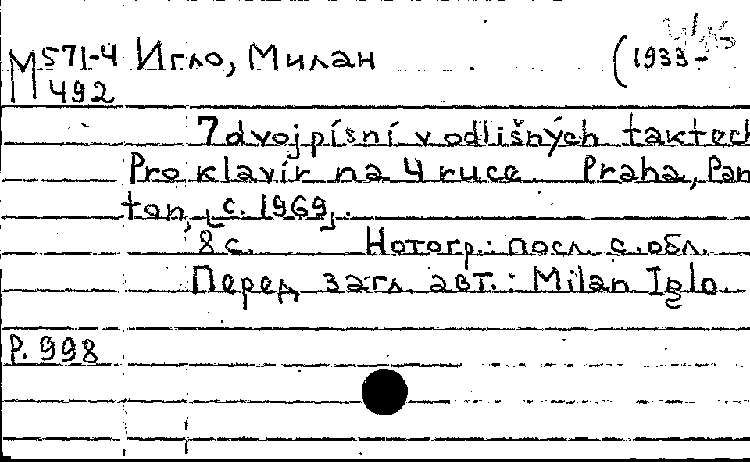 М 571-4 Игло, Милан (1933-
492
7 dvojpísní v odlišných taktech
Pro klavír na 4 ruce. Praha, Pan
ton, [с. 1969].
8 с. Нотогр.: посл. с. обл.
Перед загл. авт.: Milan Iglo.
Р. 998